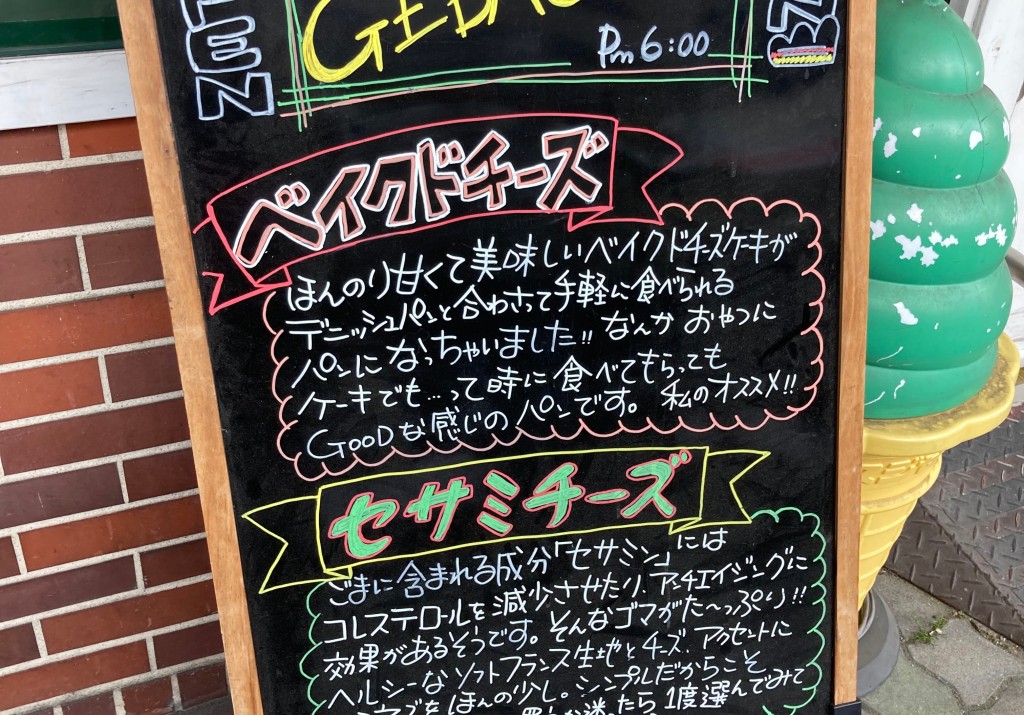 Pm 6:00
ベイクドチーズ
ほんのり甘くて美味しいベイクドチーズケーキが
デニッシュパンと合わさって手軽に食べられる
パンになっちゃいました!! なんか おやつに
ケーキでも…って時に食べてもらっても
GOODな感じのパンです。 私のオススメ!!
セサミチーズ
ごまに含まれる成分「セサミン」には
コレステロールを減少させたり、アンチエイジングに
効果があるそうです。そんなゴマがた〜っぷり!!
ヘルシーなソフトフランス生地とチーズ、アクセントに
をほんの少し。シンプルだからこそ
迷ったら1度選んでみて